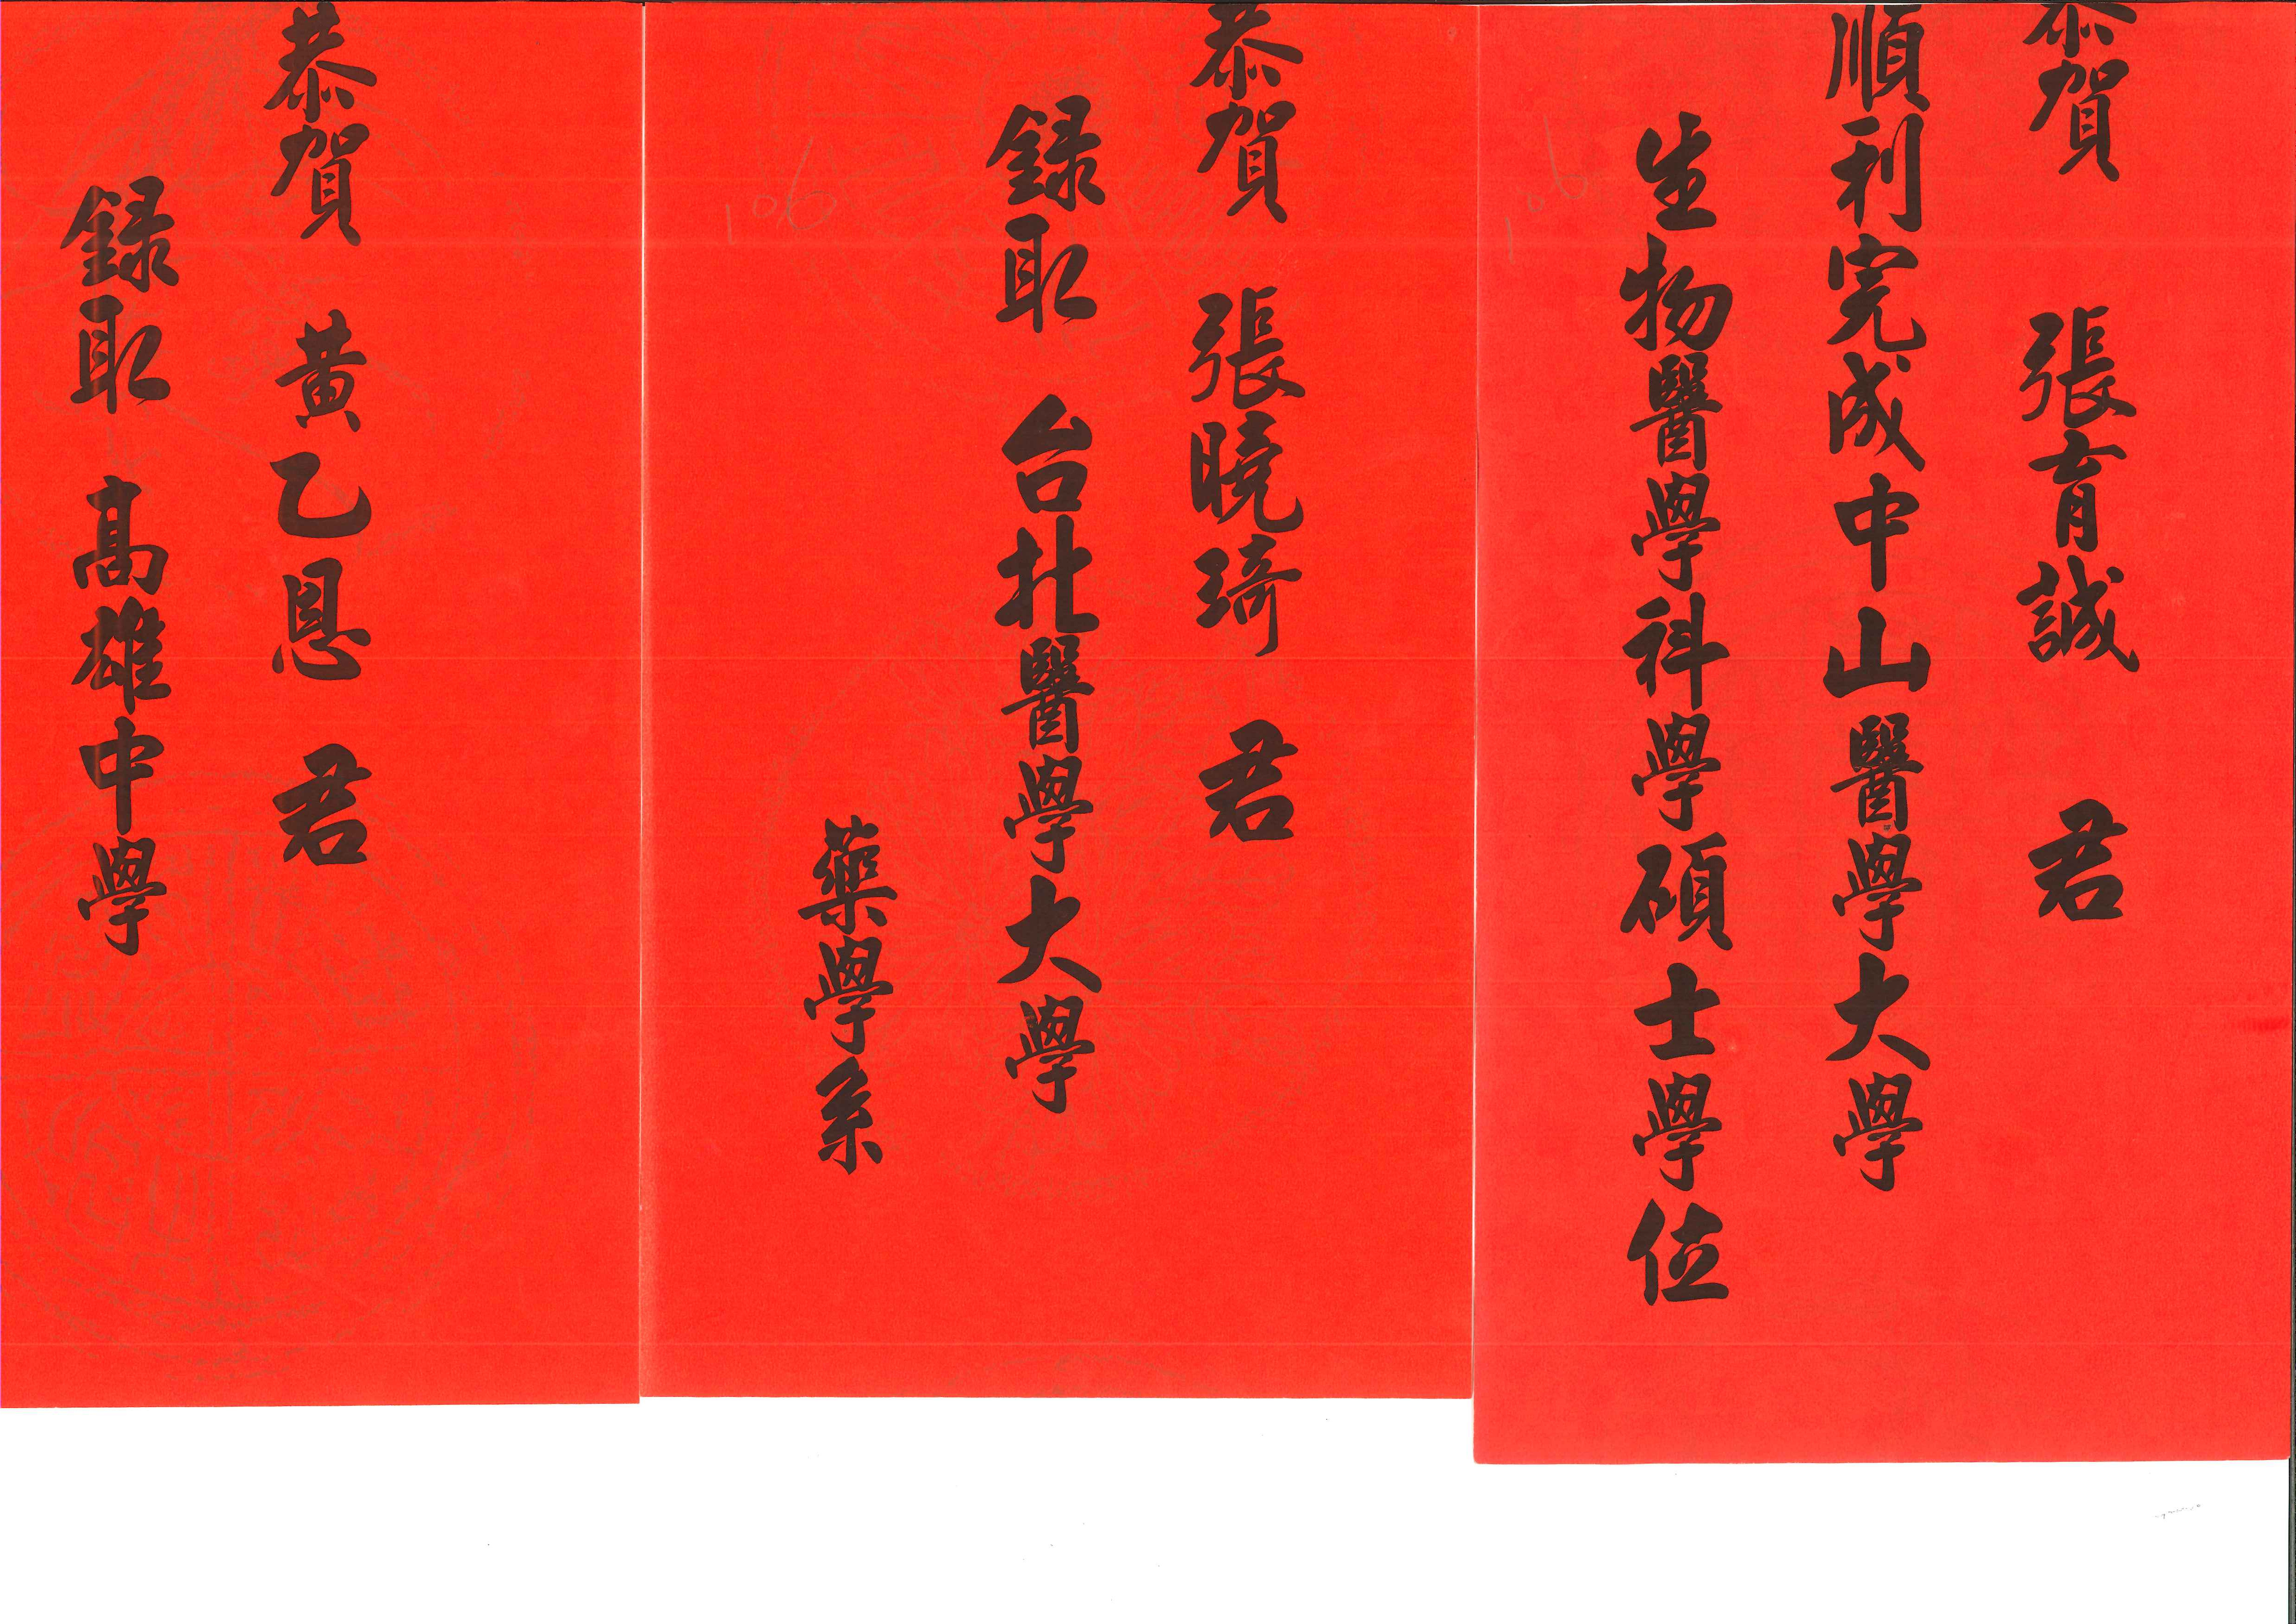 恭賀 張育誠 君
順利完成中山醫學大學
生物醫學科學碩士學位
106
恭賀 張曉琦 君
錄取 台北醫學大學
藥學系
106
恭賀 黃乙恩 君
錄取 高雄中學